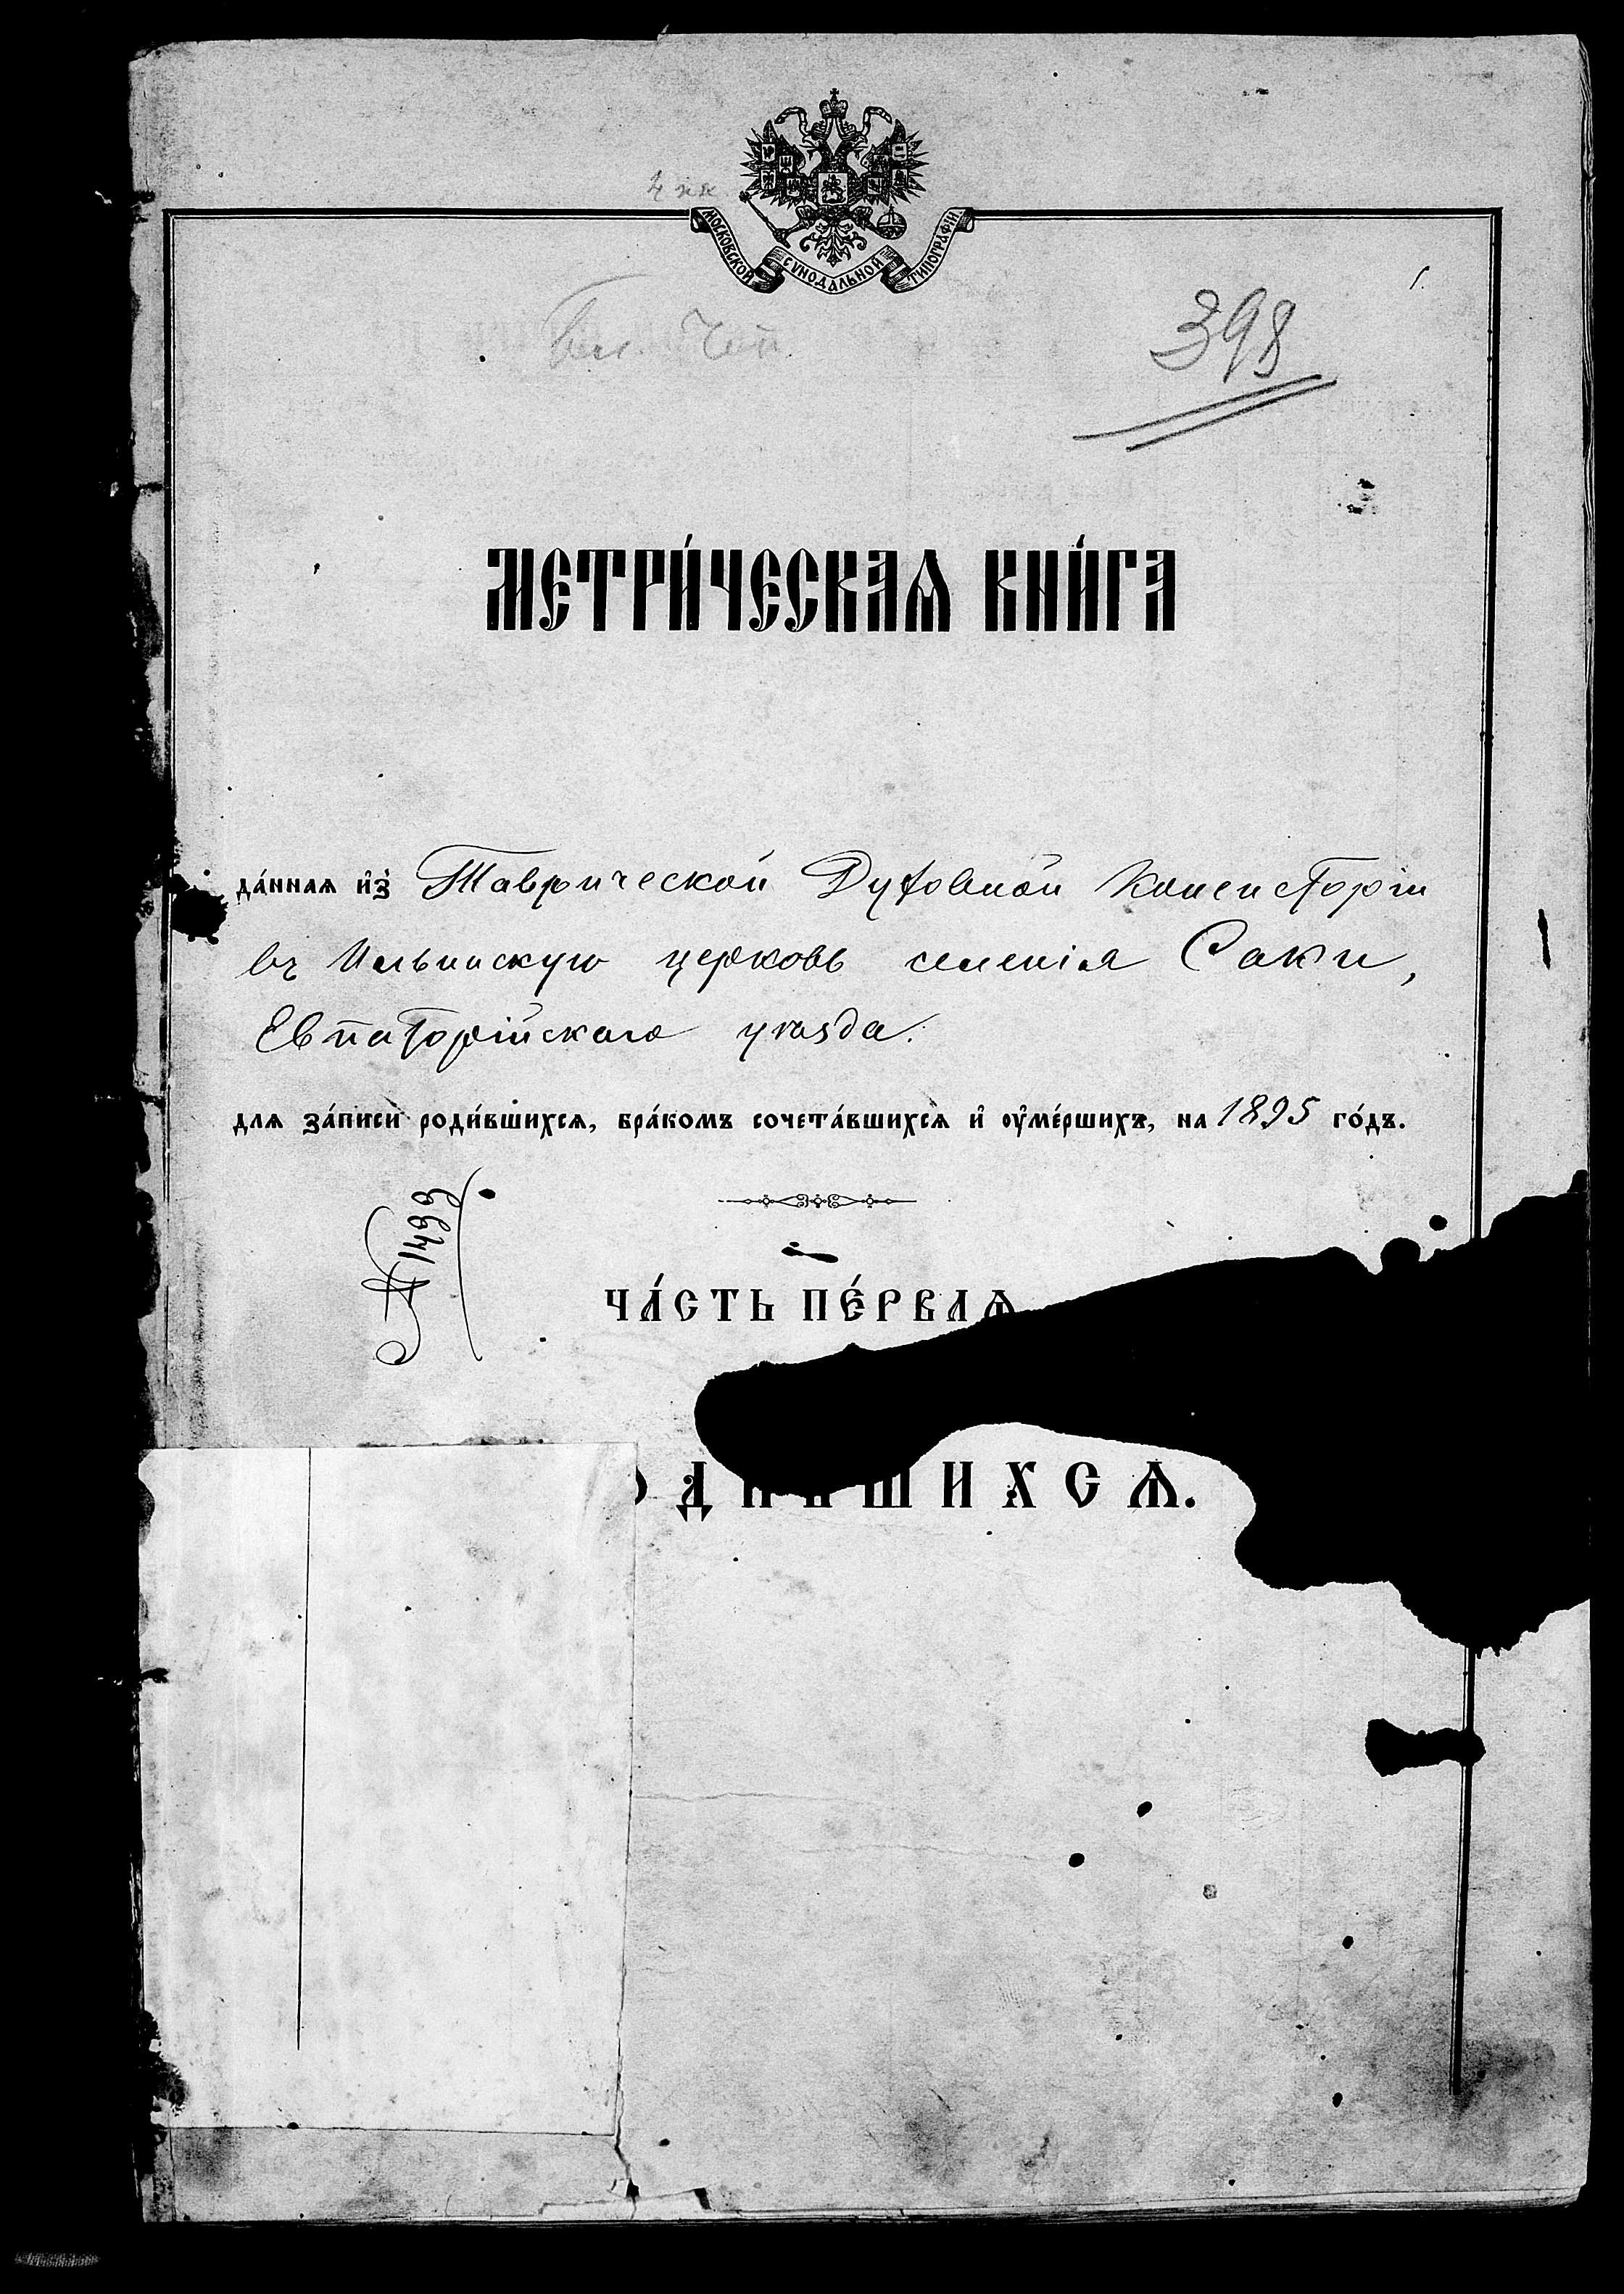 МОСКОВСКОЙ СѴНОДАЛЬНОЙ ТИПОГРАФІИ
398
МЕТРИ́ЧЕСКАѦ КНИ́ГА
да́ннаѧ и҆з̾ Таврической Духовной Консисторіи
въ Ильинскую церковь селенія Саки,
Евпаторійскаго уѣзда.
длѧ за́писи роди́вшихсѧ, бра́комъ сочета́вшихсѧ и҆ оу҆ме́ршихъ, на 1895 го́дъ.
№ 1499
ЧА́СТЬ ПЕ́РВАѦ
ОДИВШИХСѦ.